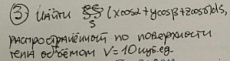 ③ Найти ∯ (xcosα+ycosβ+zcosγ)ds,
S
распространённый по поверхности
тела объёмом V=10 куб.ед.